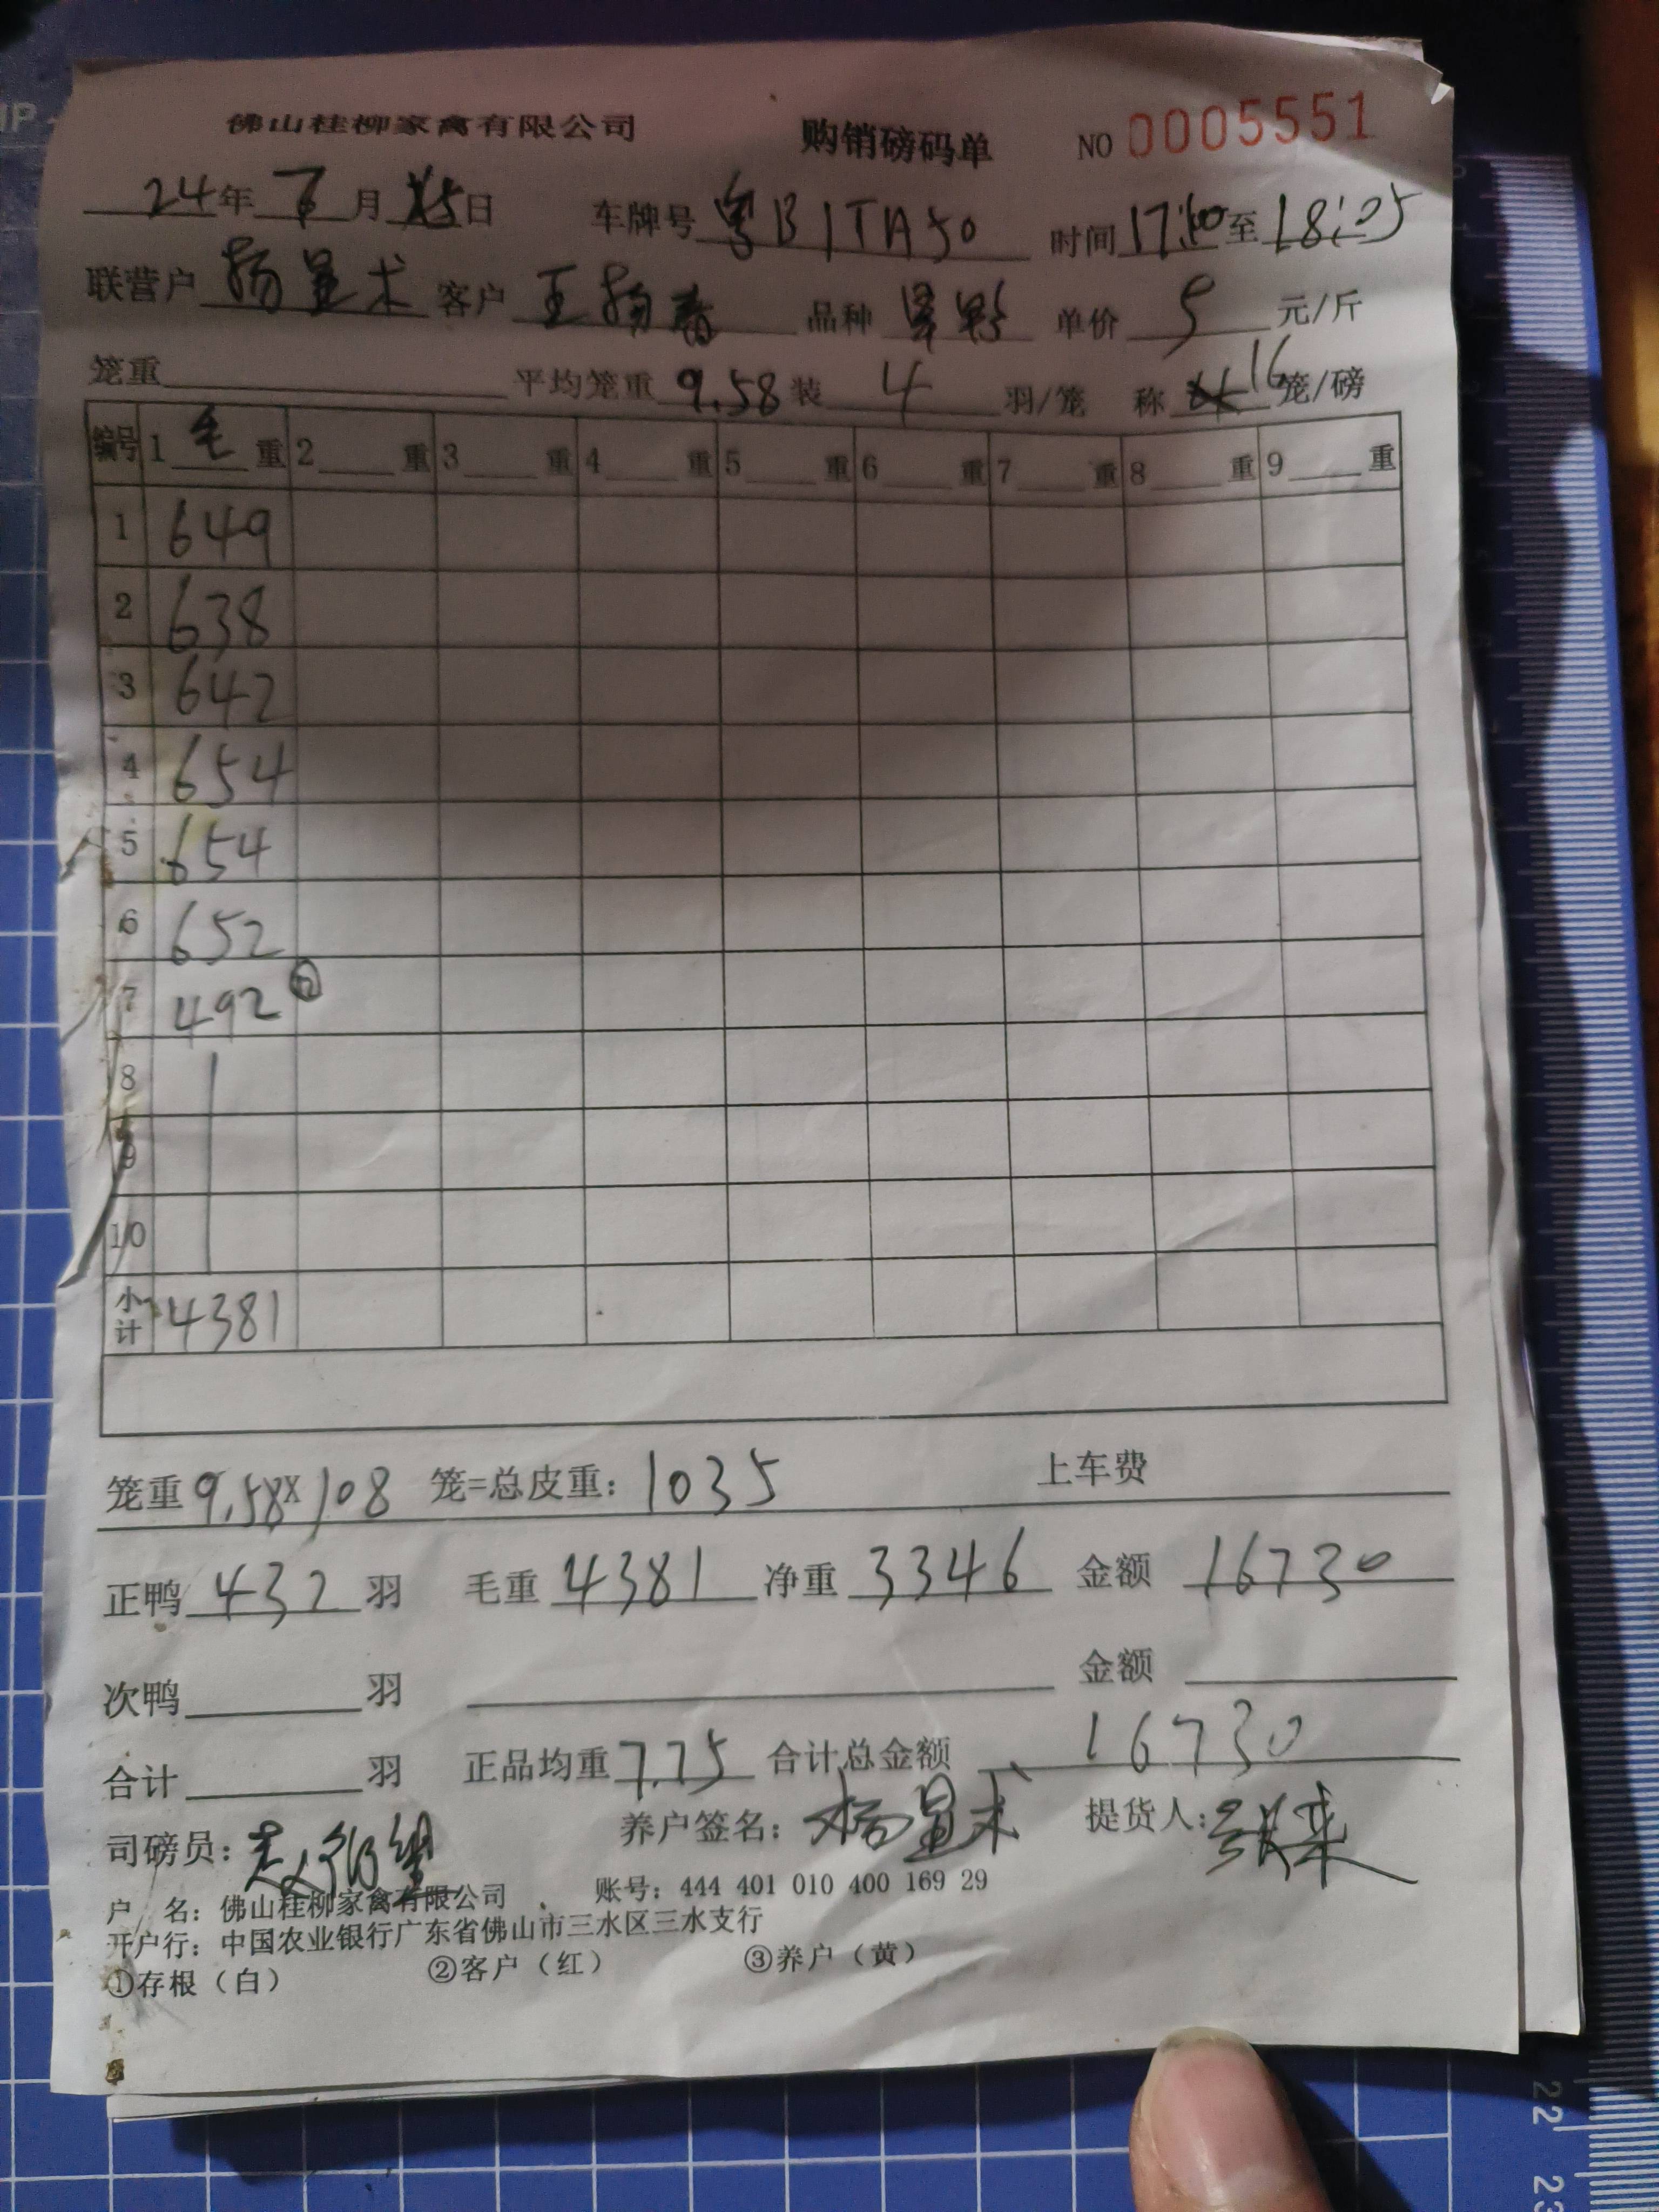 佛山桂柳家禽有限公司 购销磅码单 NO 0005551
24年 月 日 车牌号 粤B1TA50 时间 17:00至18:05
联营户 杨显术 客户 王扬春 品种 单价 5 元/斤
笼重 平均笼重 9.58 装 4 羽/笼 称 16 笼/磅
编号 1 毛 重 2 重 3 重 4 重 5 重 6 重 7 重 8 重 9 重
1 649
2 638
3 642
4 654
5 654
6 652
7 492 ⑫
8
9
10
小计 4381
笼重 9.58×108 笼=总皮重: 1035 上车费
正鸭 432 羽 毛重 4381 净重 3346 金额 16730
次鸭 羽 金额
合计 羽 正品均重 7.75 合计总金额 16730
司磅员: 养户签名: 杨显术 提货人:
户 名: 佛山桂柳家禽有限公司 账号: 444 401 010 400 169 29
开户行: 中国农业银行广东省佛山市三水区三水支行
①存根（白） ②客户（红） ③养户（黄）
22
23